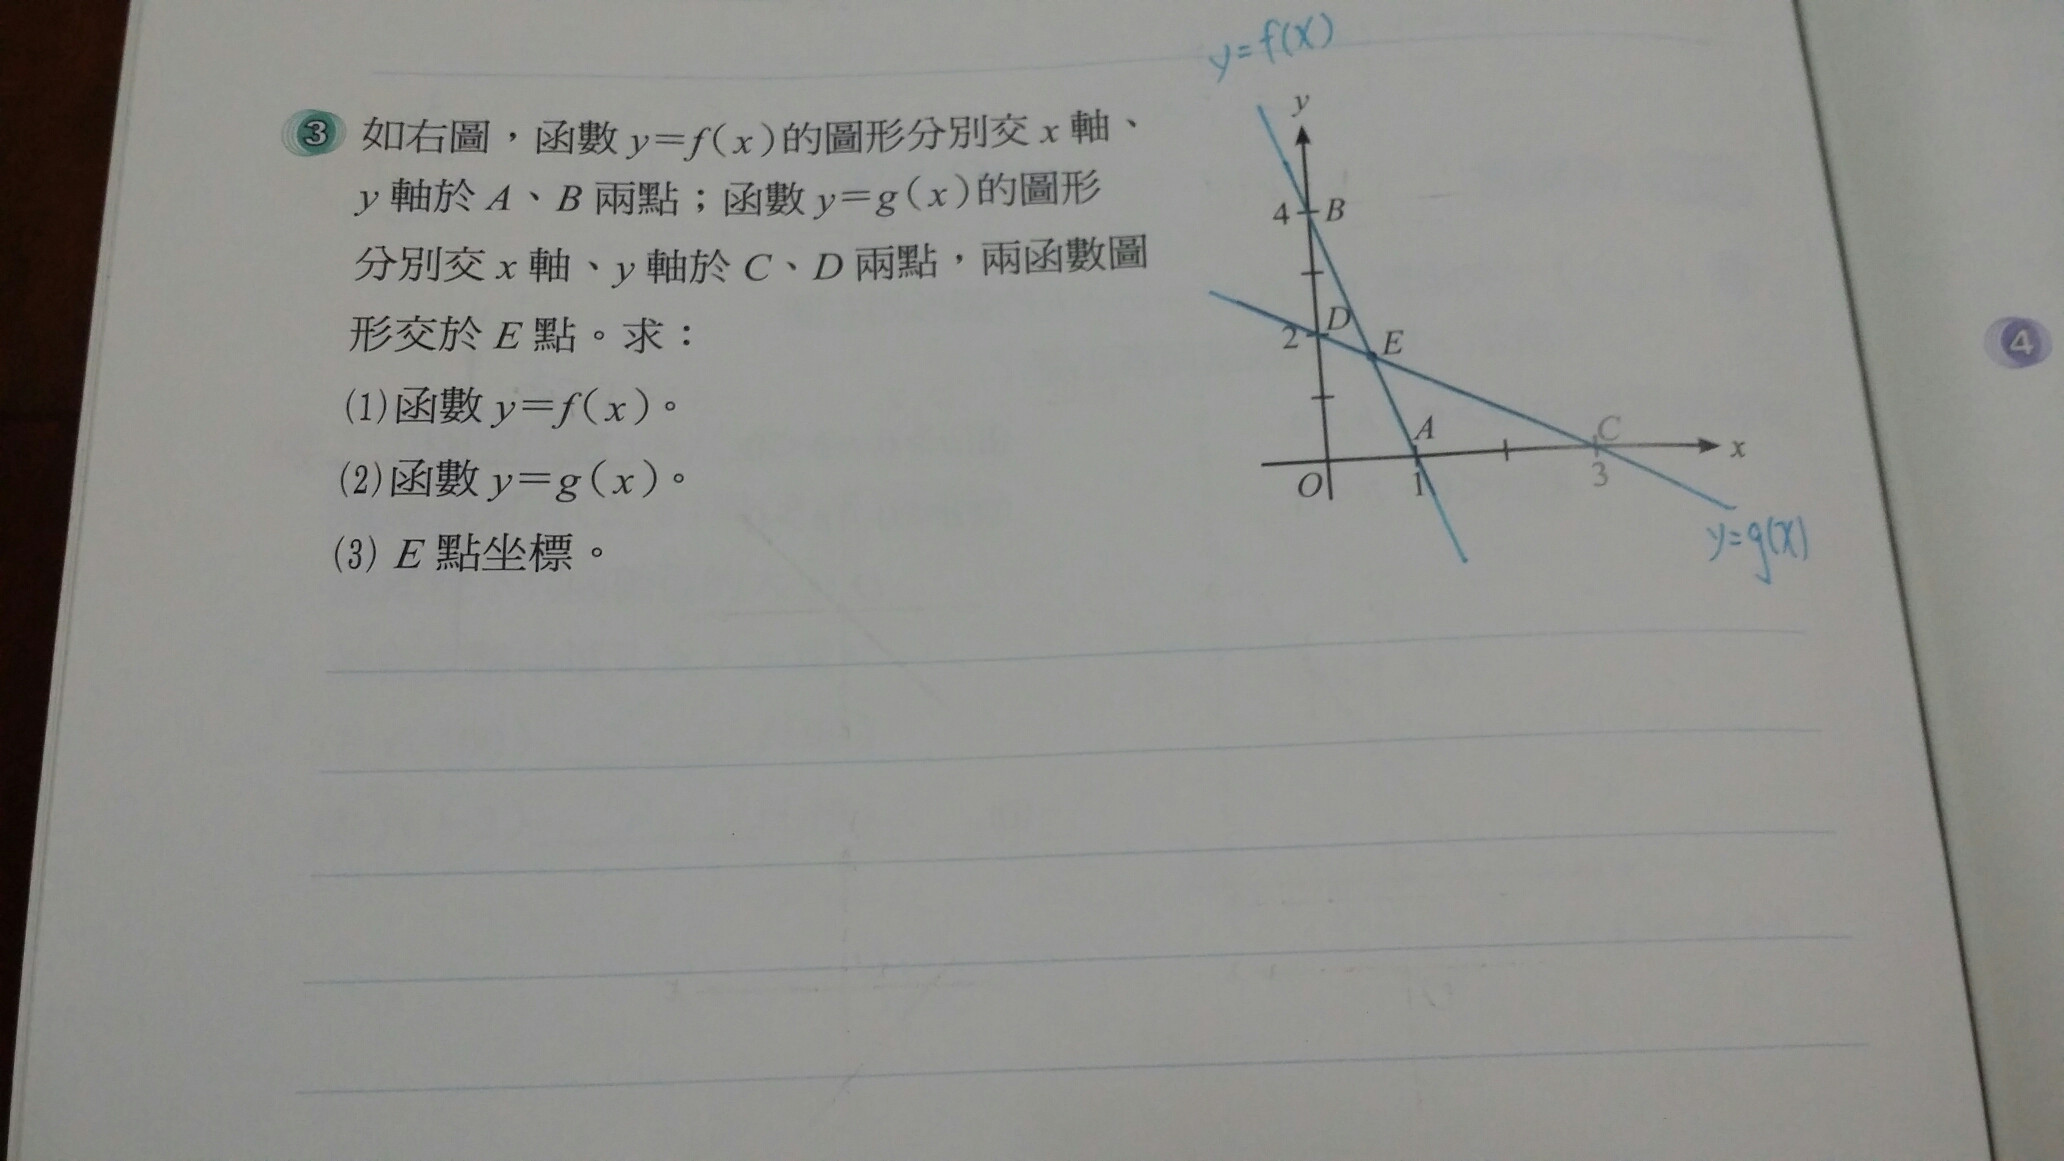 y=f(x)
3 如右圖，函數 y=f(x)的圖形分別交 x 軸、
y 軸於 A、B 兩點；函數 y=g(x)的圖形
分別交 x 軸、y 軸於 C、D 兩點，兩函數圖
形交於 E 點。求：
(1)函數 y=f(x)。
(2)函數 y=g(x)。
(3) E 點坐標。
y
4 B
2 D
E
A
C
x
O
1
3
y=g(x)
4